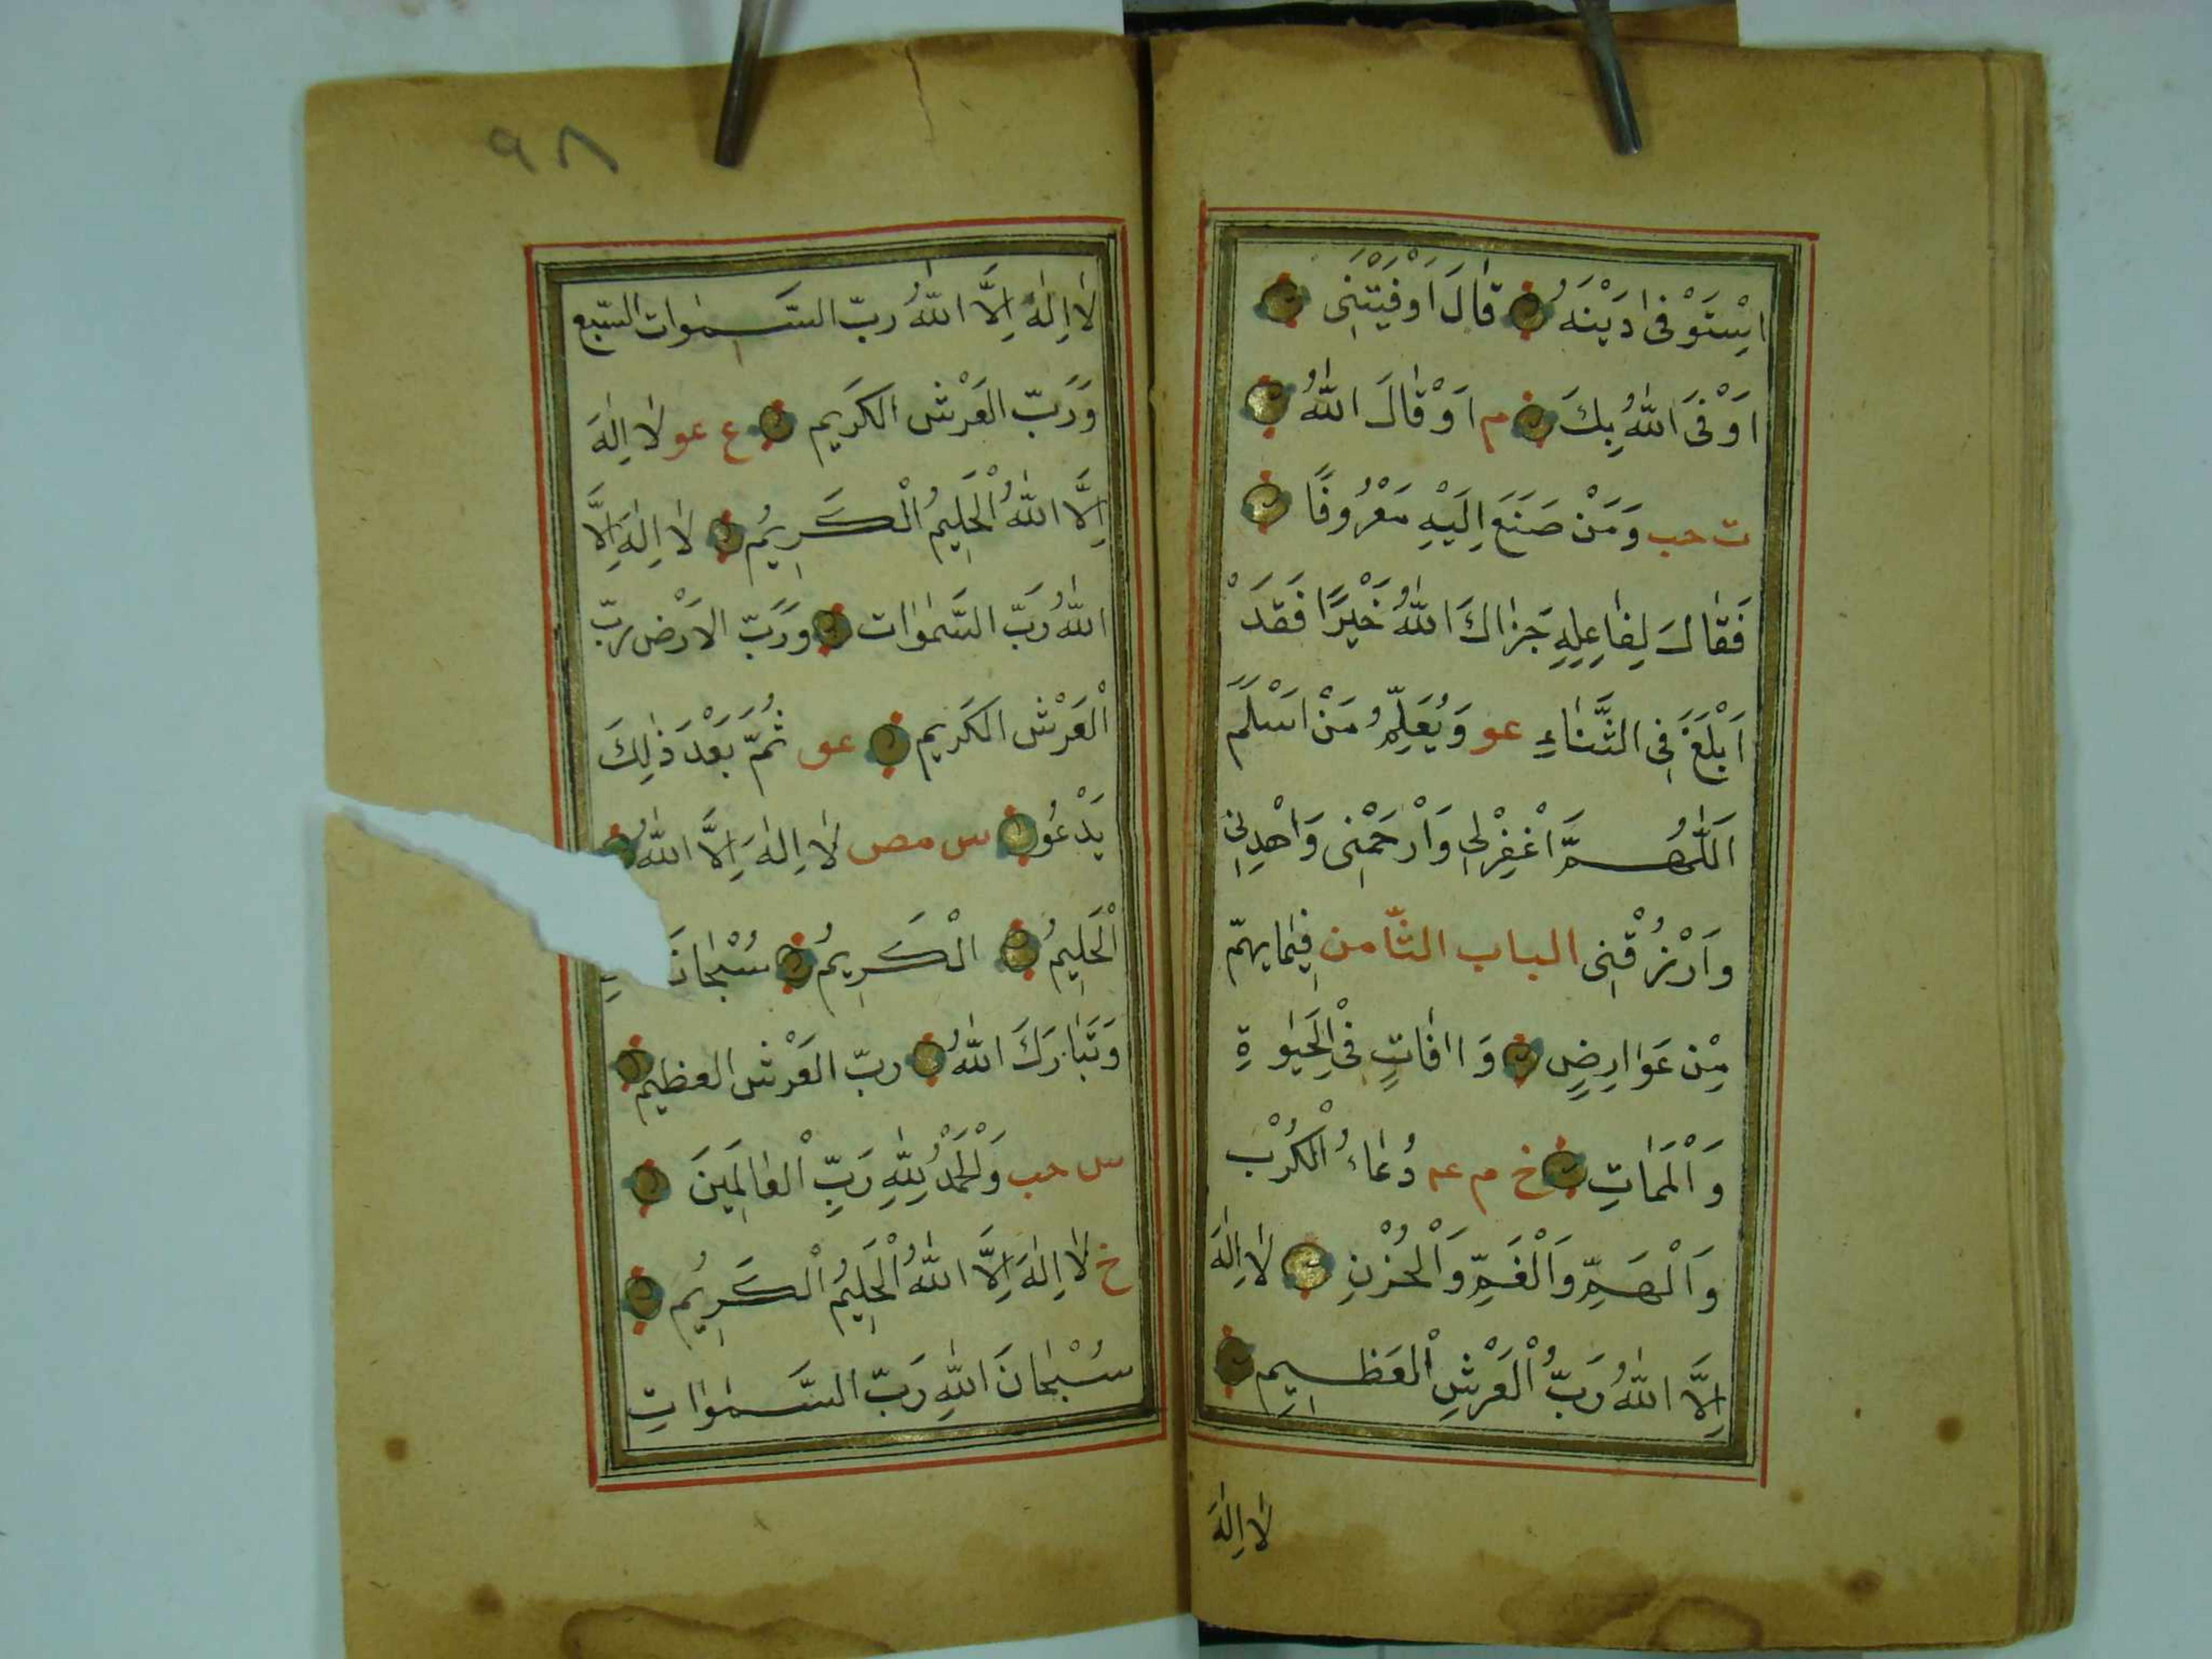 اِسْتَوْفٰى دَيْنَهُ قٰالَ اَوْفَيْتَنِى
اَوْفَى اللّٰهُ بِكَ م اَوْ قٰالَ اللّٰهُ
ت حب وَمَنْ صَنَعَ اِلَيْهِ مَعْرُوفًا
فَقٰالَ لِفٰاعِلِهِ جَزٰاكَ اللّٰهُ خَيْرًا فَقَدْ
اَبْلَغَ فِى الثَّنٰاءِ عو وَيُعَلِّمُ مَنْ اَسْلَمَ
اَللّٰهُمَّ اغْفِرْلِى وَارْحَمْنِى وَاهْدِنِى
وَارْزُقْنِى الباب الثّامن فِيمٰا يهمّ
مِنْ عَوٰارِضٍ وَاٰفٰاتٍ فِى الْحَيٰوةِ
وَالْمَمٰاتِ خ م عه دُعٰاءُ الْكَرْبِ
وَالْهَمِّ وَالْغَمِّ وَالْحُزْنِ لٰا اِلٰهَ
اِلَّا اللّٰهُ رَبُّ الْعَرْشِ الْعَظِيمِ
لٰا اِلٰهَ
٩٨
لٰا اِلٰهَ اِلَّا اللّٰهُ ربّ السَّمٰوات السّبع
وَرَبّ العَرْش الكَرِيم ع عو لٰا اِلٰهَ
اِلَّا اللّٰهُ الْحَلِيمُ الْكَرِيمُ لٰا اِلٰهَ اِلَّا
اللّٰهُ رَبّ السَّمٰوٰات وَرَبّ الاَرْض ربّ
الْعَرْش الكَرِيم عو ثُمَّ بَعْدَ ذٰلِكَ
يَدْعُو س مص لٰا اِلٰهَ اِلَّا اللّٰهُ
الْحَلِيمُ الْكَرِيمُ سُبْحٰانَ
وَتَبٰارَكَ اللّٰهُ ربّ العَرْش العظيم
س حب وَالْحَمْدُ لِلّٰهِ رَبِّ الْعٰالَمِينَ
خ لٰا اِلٰهَ اِلَّا اللّٰهُ الْحَلِيمُ الْكَرِيمُ
سُبْحٰانَ اللّٰهِ رَبّ السَّمٰوٰاتِ